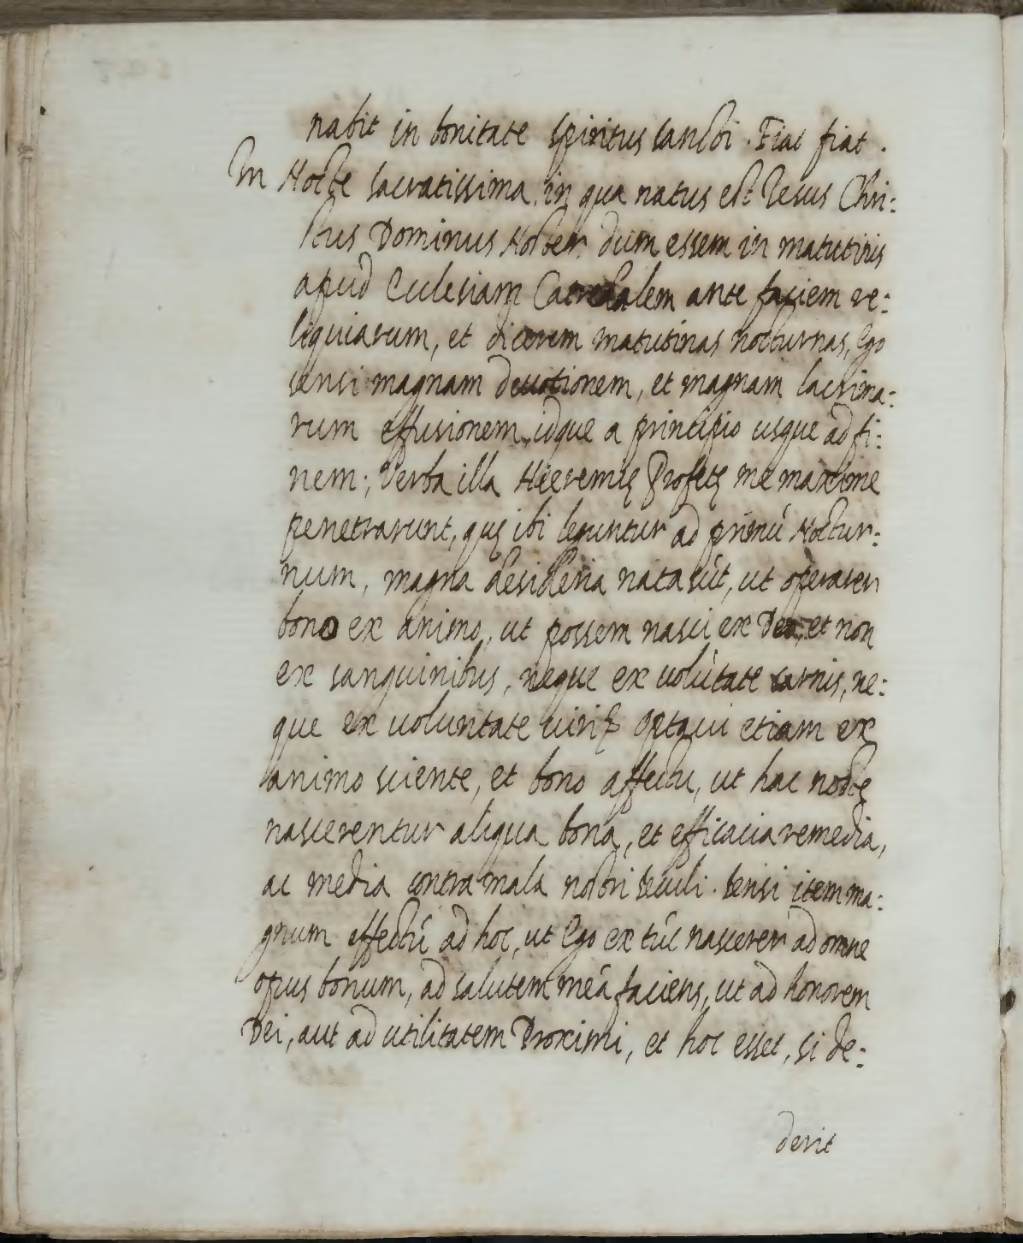 nabit in bonitate spiritus sancti. Fiat fiat.
In Nocte sacratissima, in qua natus est Iesus Chri:
stus Dominus Noster dum essem in matutinis
apud Ecclesiam Catredalem ante faciem re:
liquiarum, et dicerem matutinas nocturnas, Ego
sensi magnam deuotionem, et magnam lacrima:
rum effusionem, idque a principio usque ad fi:
nem; Verba illa Hieremię Profetę me maxime
penetrarunt, quę ibi leguntur ad primū Noctur:
num, magna desideria nata sūt, ut operarer
bono ex animo, ut possem nasci ex Deo, et non
ex sanguinibus, neque ex volūtate carnis, ne:
que ex uoluntate uiri; optaui etiam ex
animo sciente, et bono affectu, ut hac nocte
nascerentur aliqua bona, et efficacia remedia,
ac media contra mala nostri seculi. Sensi item ma:
gnum affectū ad hoc, ut Ego ex tūc nascerer ad omne
opus bonum, ad salutem meā faciens, ut ad honorem
Dei, aut ad utilitatem Proximi, et hoc esset, si de:
derit